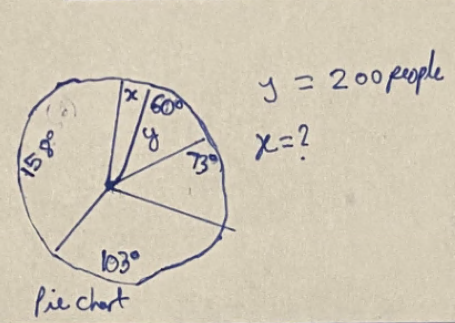 y = 200 people
x = ?
x
60°
y
158°
73°
103°
Pie chart